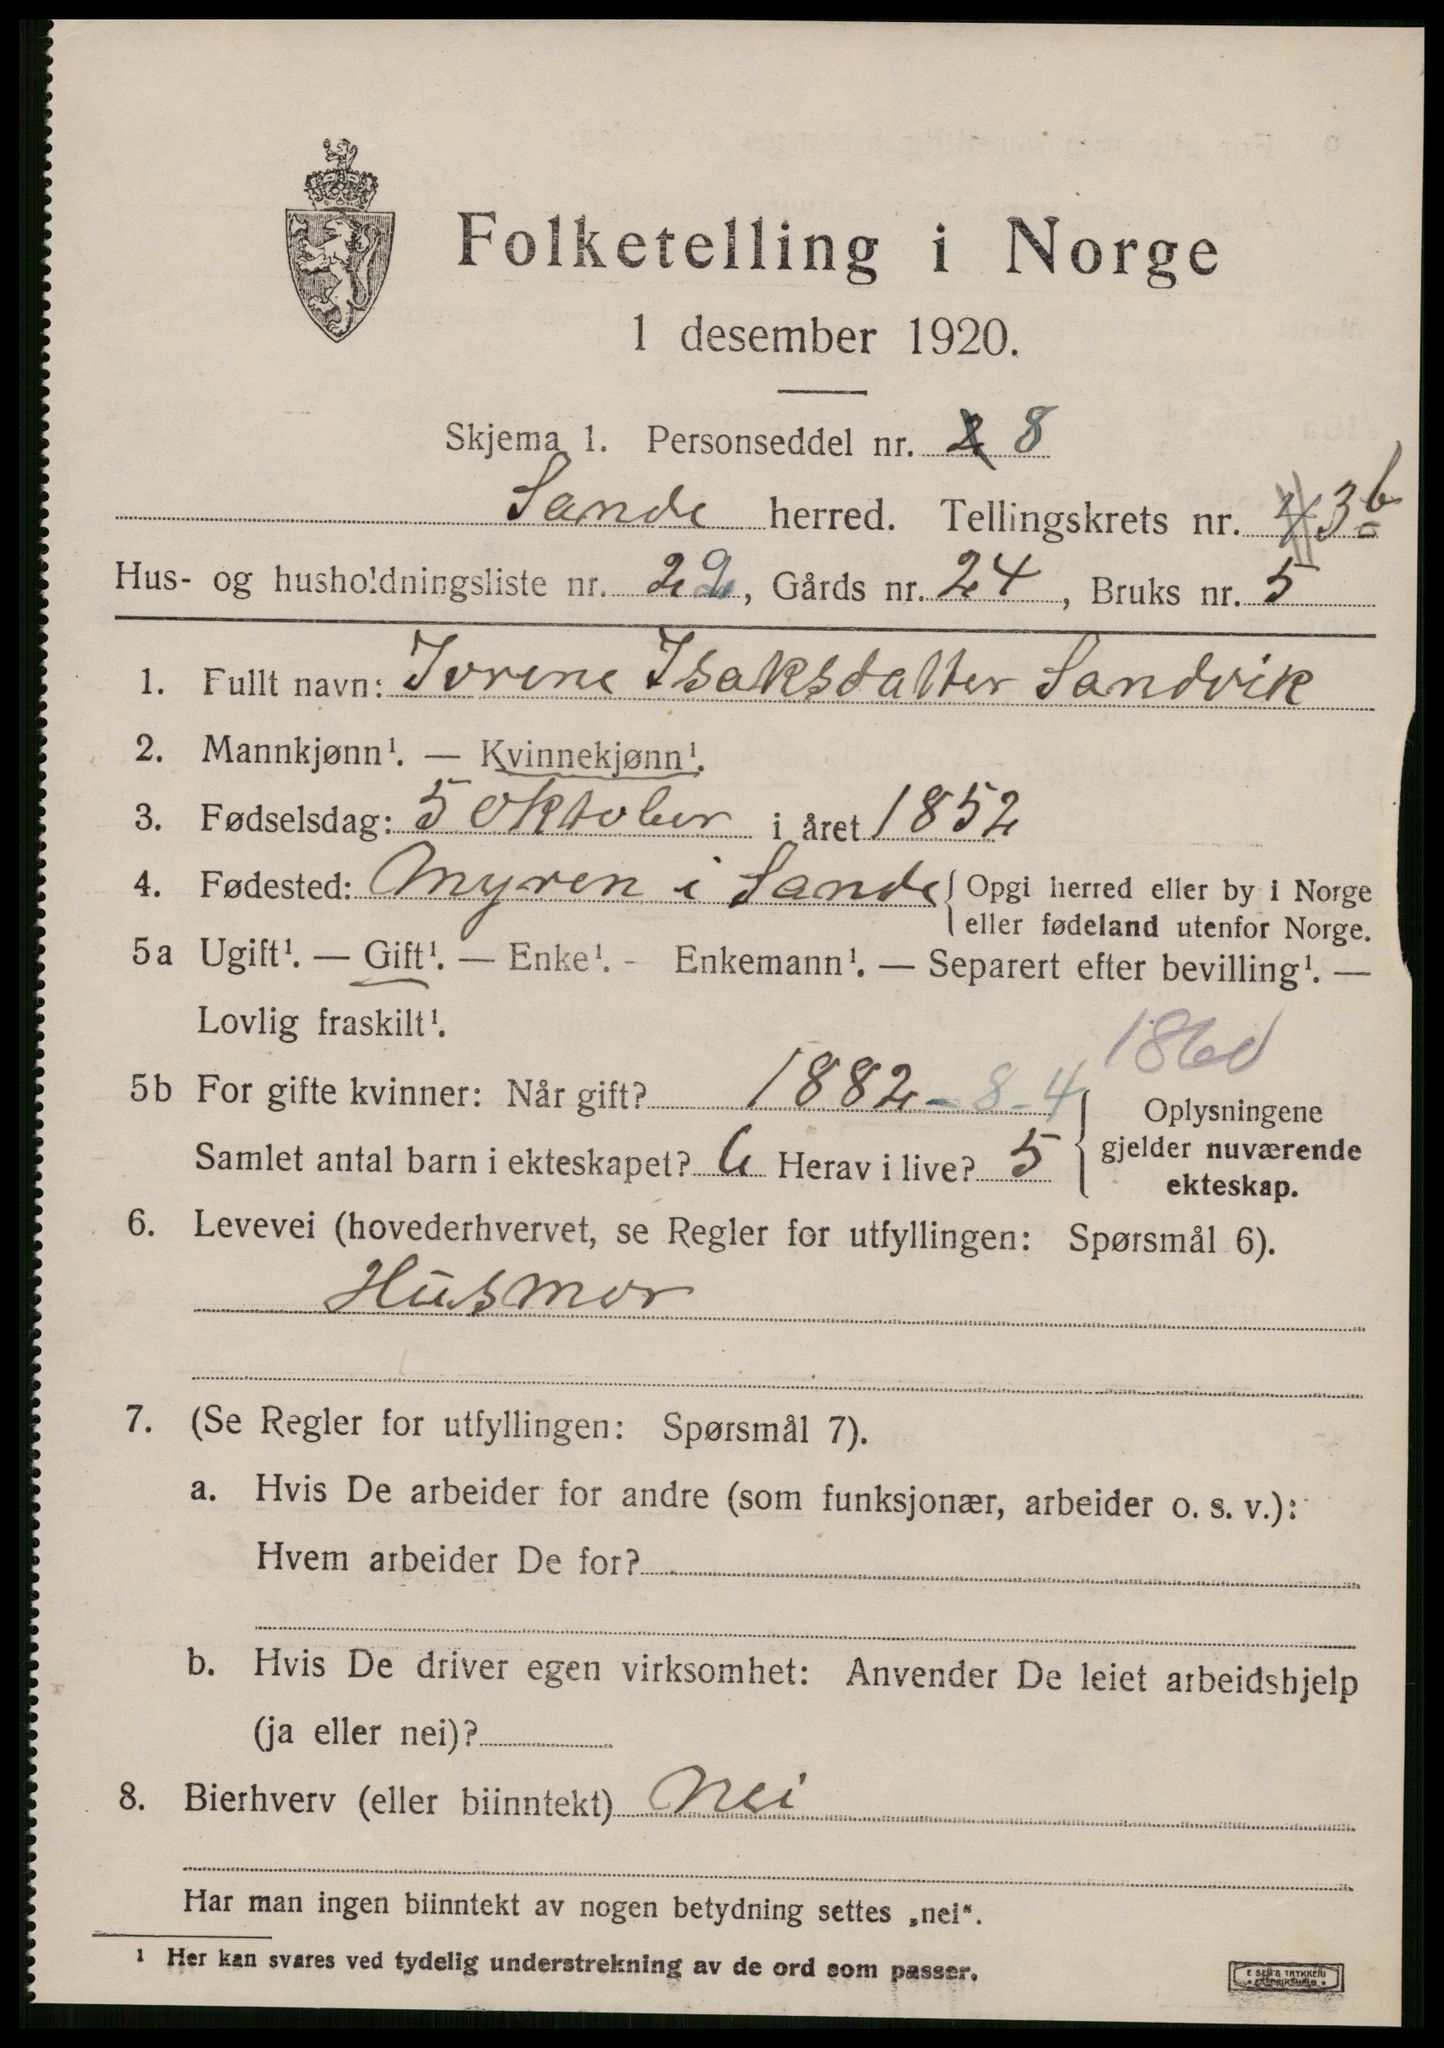 Folketelling i Norge
1 desember 1920.
Skjema 1. Personseddel nr. 2 8
Sande herred. Tellingskrets nr. 3b
Hus- og husholdningsliste nr. 22, Gårds nr. 24, Bruks nr. 5
1. Fullt navn: Ivrine Isaksdatter Sandvik
2. Mannkjønn¹. — Kvinnekjønn¹.
3. Fødselsdag: 5 Oktober i året 1852
4. Fødested: Myren i Sande { Opgi herred eller by i Norge
eller fødeland utenfor Norge.
5a Ugift¹. — Gift¹. — Enke¹. - Enkemann¹. — Separert efter bevilling¹. —
Lovlig fraskilt¹.
5b For gifte kvinner: Når gift? 1882 - 8 - 4 { Oplysningene
Samlet antal barn i ekteskapet? 6 Herav i live? 5 gjelder nuværende
ekteskap.
6. Levevei (hovederhvervet, se Regler for utfyllingen: Spørsmål 6).
Husmor
7. (Se Regler for utfyllingen: Spørsmål 7).
a. Hvis De arbeider for andre (som funksjonær, arbeider o. s. v.):
Hvem arbeider De for?
b. Hvis De driver egen virksomhet: Anvender De leiet arbeidshjelp
(ja eller nei)?
8. Bierhverv (eller biinntekt) Nei
Har man ingen biinntekt av nogen betydning settes „nei“.
¹ Her kan svares ved tydelig understrekning av de ord som passer.